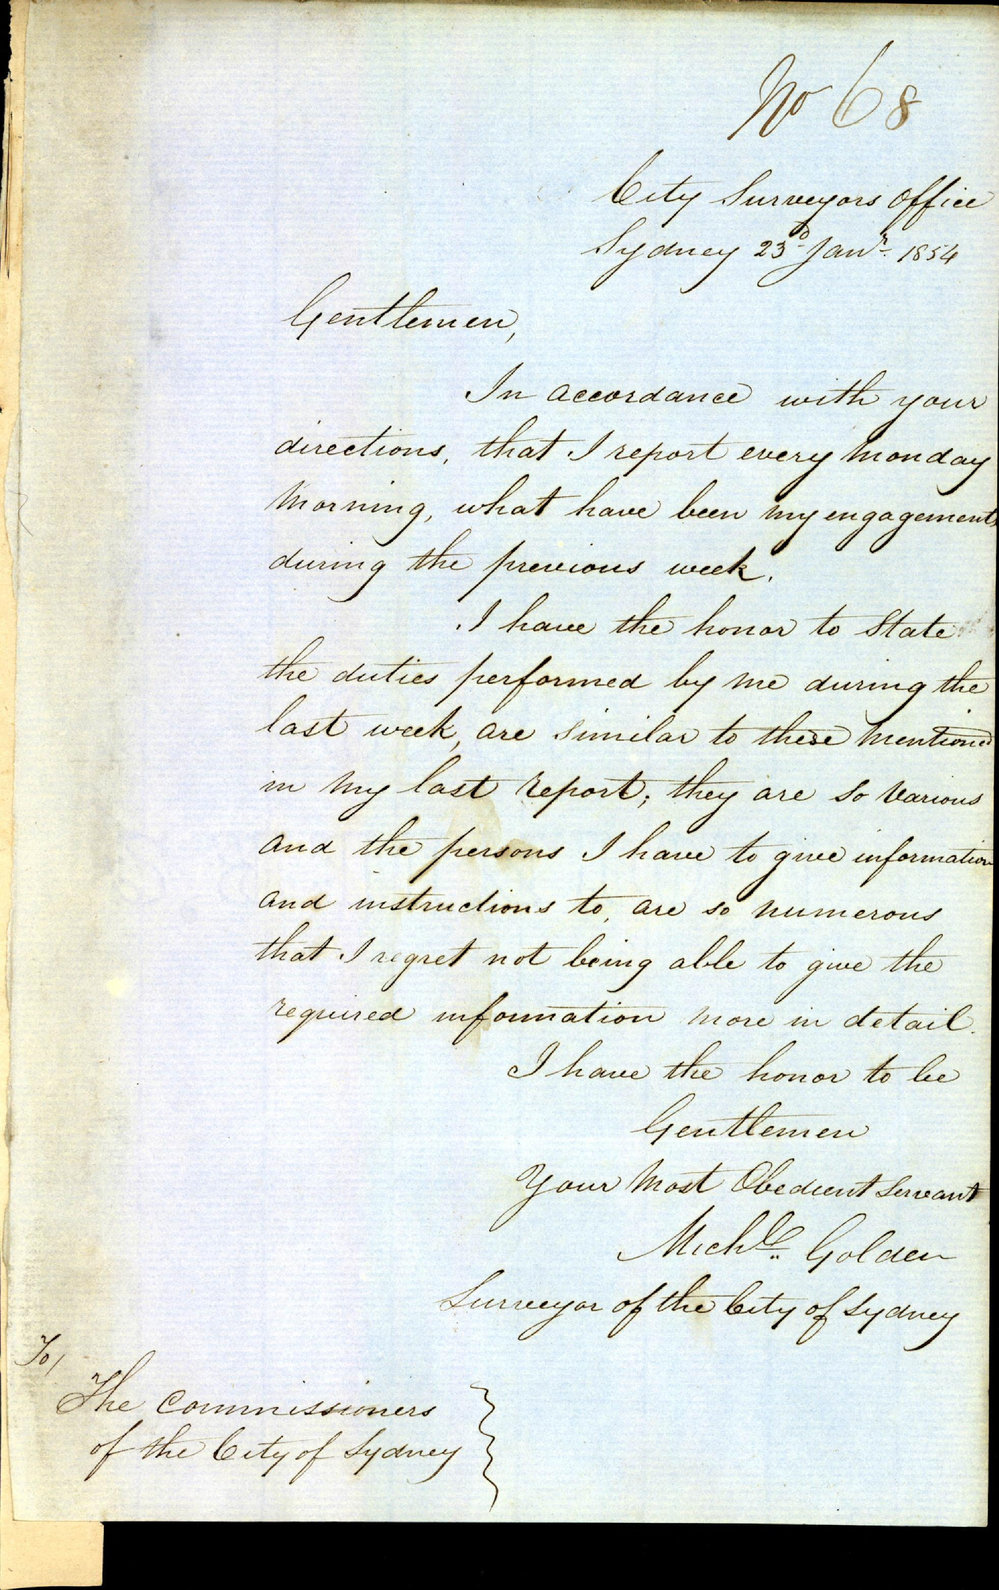 No 68
City Surveyors Office
Sydney 23d Janr. 1854
Gentlemen,
In accordance with your
directions, that I report every Monday
Morning, what have been my engagements
during the previous week.
I have the honor to State
the duties performed by me during the
last week, are similar to these mentioned
in my last report; they are so various
and the persons I have to give information
and instructions to, are so numerous
that I regret not being able to give the
required information more in detail.
I have the honor to be
Gentlemen
Your Most Obedient Servant
Michl. Golden
Surveyor of the City of Sydney
To/
The Commissioners
of the City of Sydney